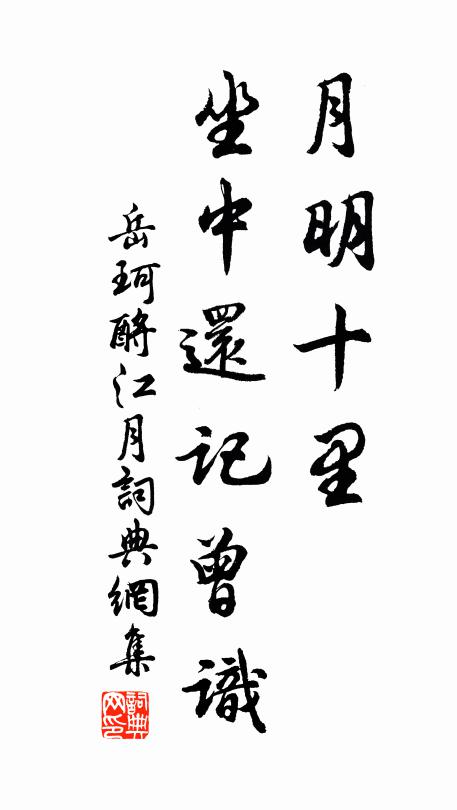 月明十里
坐中還記曾識
岳珂酹江月詞典網集
詞典網印